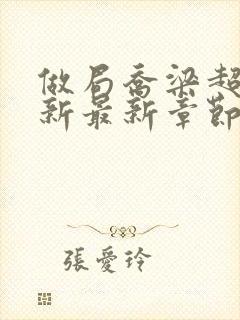 做局乔梁超
新最新章節
張愛玲